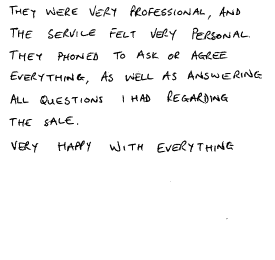 THEY WERE VERY PROFESSIONAL, AND
THE SERVICE FELT VERY PERSONAL.
THEY PHONED TO ASK OR AGREE
EVERYTHING, AS WELL AS ANSWERING
ALL QUESTIONS I HAD REGARDING
THE SALE.
VERY HAPPY WITH EVERYTHING